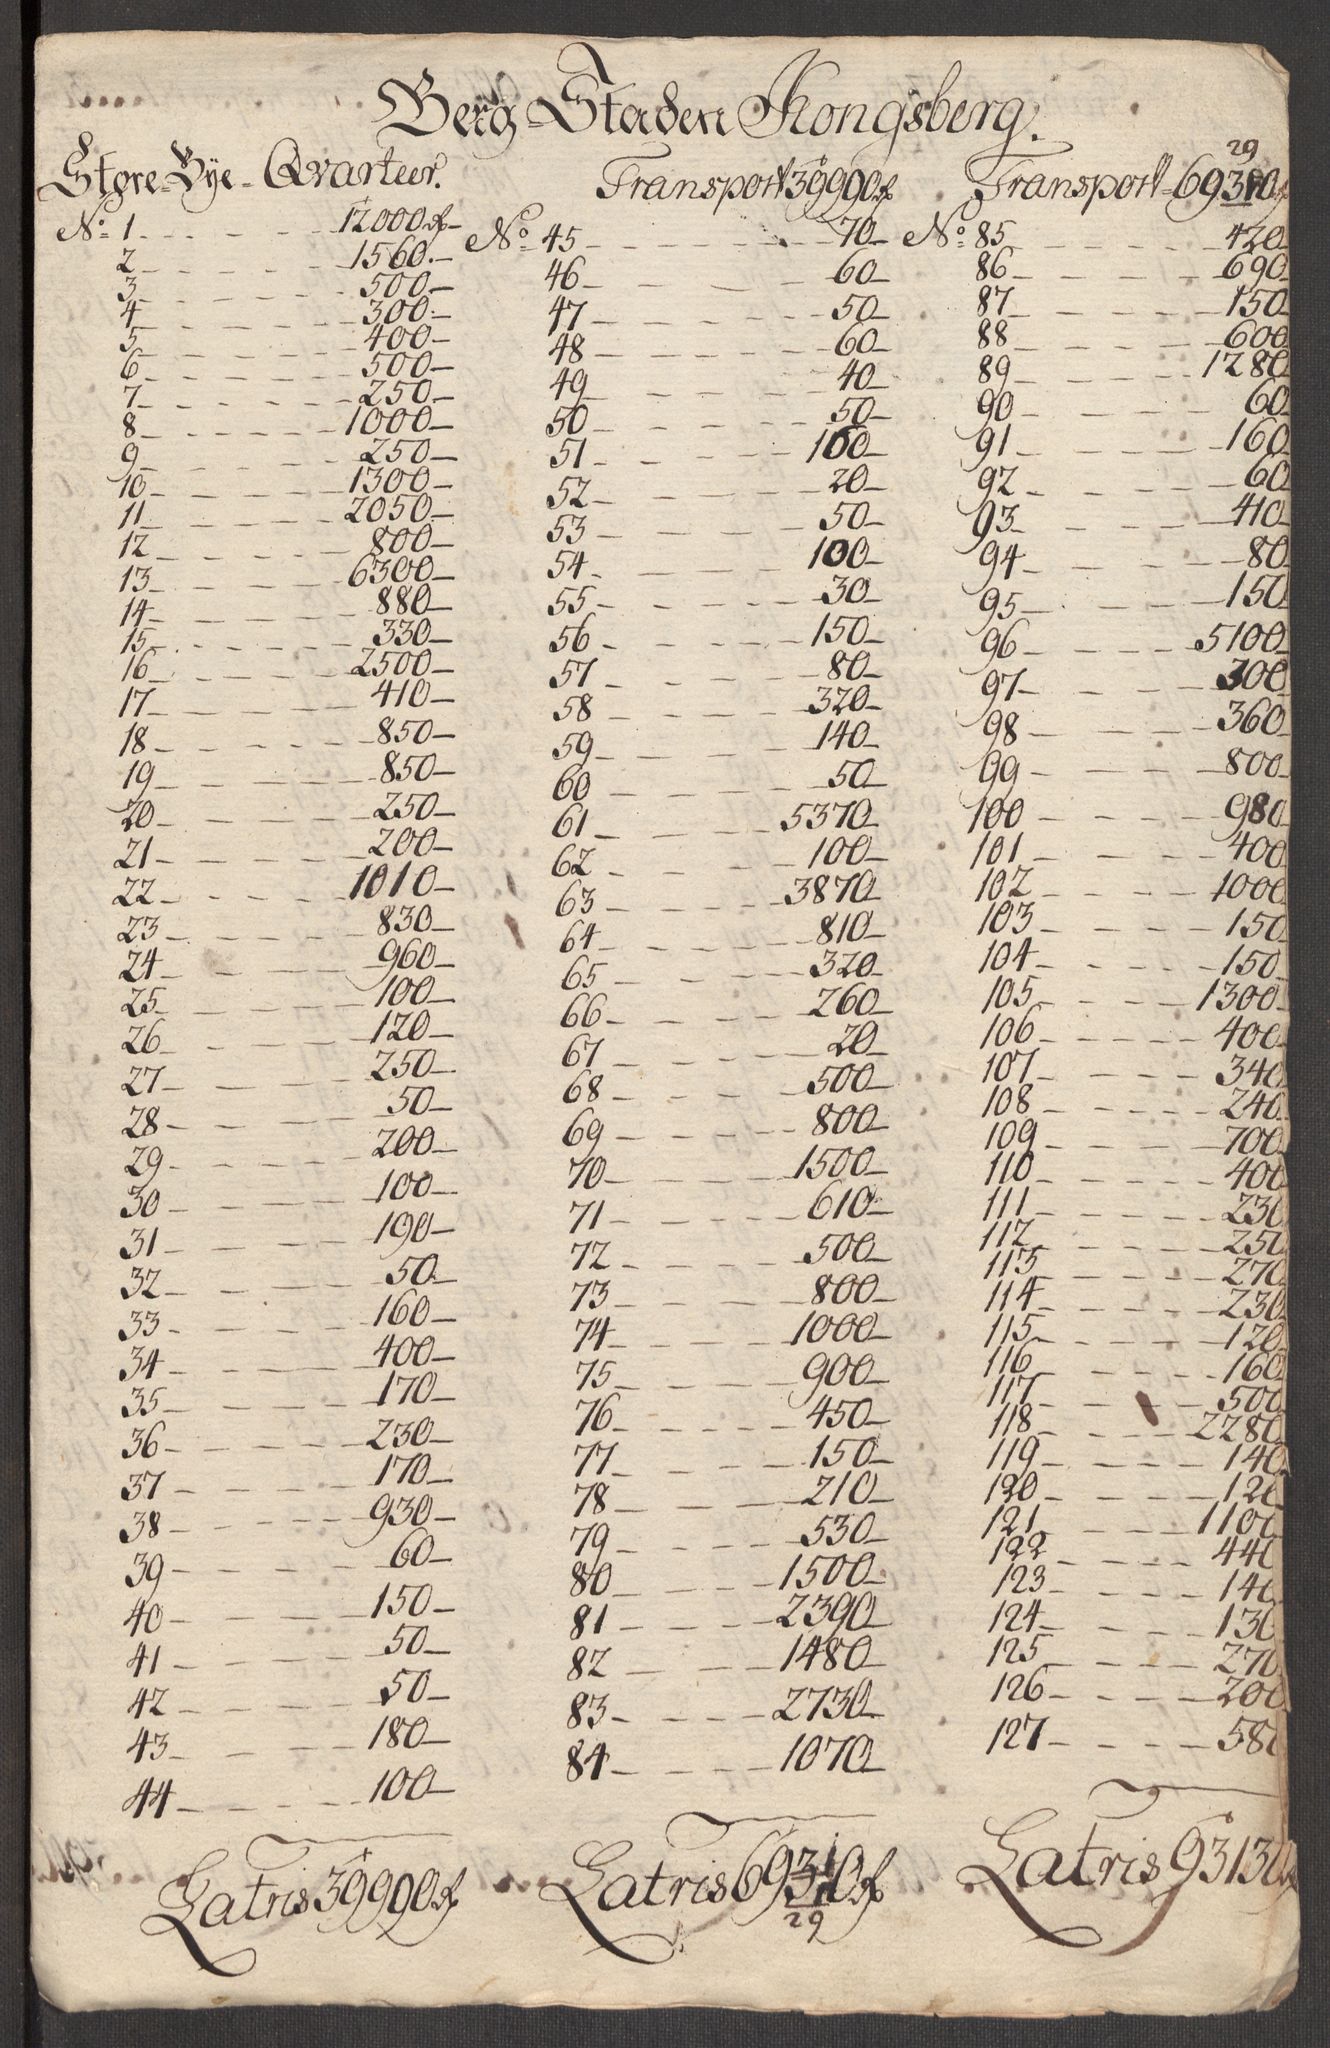 Berg-Staden Kongsberg.
Store-Bye-Qvarteer.
No. 1 - - - 12000 rd
2 - - - 1560.-
3 - - - 500.-
4 - - - 300.-
5 - - - 400-
6 - - - 500-
7 - - - 250-
8 - - - 1000-
9 - - - 250-
10 - - - 1300-
11 - - - 2050-
12 - - - 800-
13 - - - 6300-
14 - - - 880-
15 - - - 330-
16 - - - 2500-
17 - - - 410-
18 - - - 850-
19 - - - 850-
20 - - - 250-
21 - - - 200-
22 - - - 1010-
23 - - - 830-
24 - - - 960-
25 - - - 100-
26 - - - 120-
27 - - - 250-
28 - - - 50-
29 - - - 200-
30 - - - 100-
31 - - - 190-
32 - - - 50-
33 - - - 160-
34 - - - 400-
35 - - - 170-
36 - - - 230-
37 - - - 170-
38 - - - 930-
39 - - - 60-
40 - - - 150-
41 - - - 50-
42 - - - 50-
43 - - - 180-
44 - - - 100-
Latris 39990 rd
Transport 39990 rd
No. 45 - - - 70-
46 - - - 60-
47 - - - 50-
48 - - - 60-
49 - - - 40-
50 - - - 50-
51 - - - 100-
52 - - - 20-
53 - - - 50-
54 - - - 100-
55 - - - 30-
56 - - - 150-
57 - - - 80-
58 - - - 320-
59 - - - 140-
60 - - - 50-
61 - - - 5370-
62 - - - 100-
63 - - - 3870-
64 - - - 810-
65 - - - 320-
66 - - - 260-
67 - - - 20-
68 - - - 500-
69 - - - 800-
70 - - - 1500-
71 - - - 610-
72 - - - 500-
73 - - - 800-
74 - - - 1000-
75 - - - 900-
76 - - - 450-
77 - - - 150-
78 - - - 210-
79 - - - 530-
80 - - - 1500-
81 - - - 2390-
82 - - - 1480-
83 - - - 2730-
84 - - - 1070-
Latris 69310 rd
29
29
Transport 69310 rd
No. 85 - - - 420-
86 - - - 690
87 - - - 150
88 - - - 600
89 - - - 1280
90 - - - 60
91 - - - 160
92 - - - 60
93 - - - 410
94 - - - 80
95 - - - 150
96 - - - 5100
97 - - - 300
98 - - - 360
99 - - - 800
100 - - - 980
101 - - - 400
102 - - - 1000
103 - - - 150
104 - - - 150
105 - - - 1300
106 - - - 400
107 - - - 340
108 - - - 240
109 - - - 700
110 - - - 400
111 - - - 230
112 - - - 250
113 - - - 270
114 - - - 230
115 - - - 120
116 - - - 160
117 - - - 500
118 - - - 2280
119 - - - 140
120 - - - 120
121 - - - 1100
122 - - - 440
123 - - - 140
124 - - - 130
125 - - - 270
126 - - - 200
127 - - - 580
Latris 93130